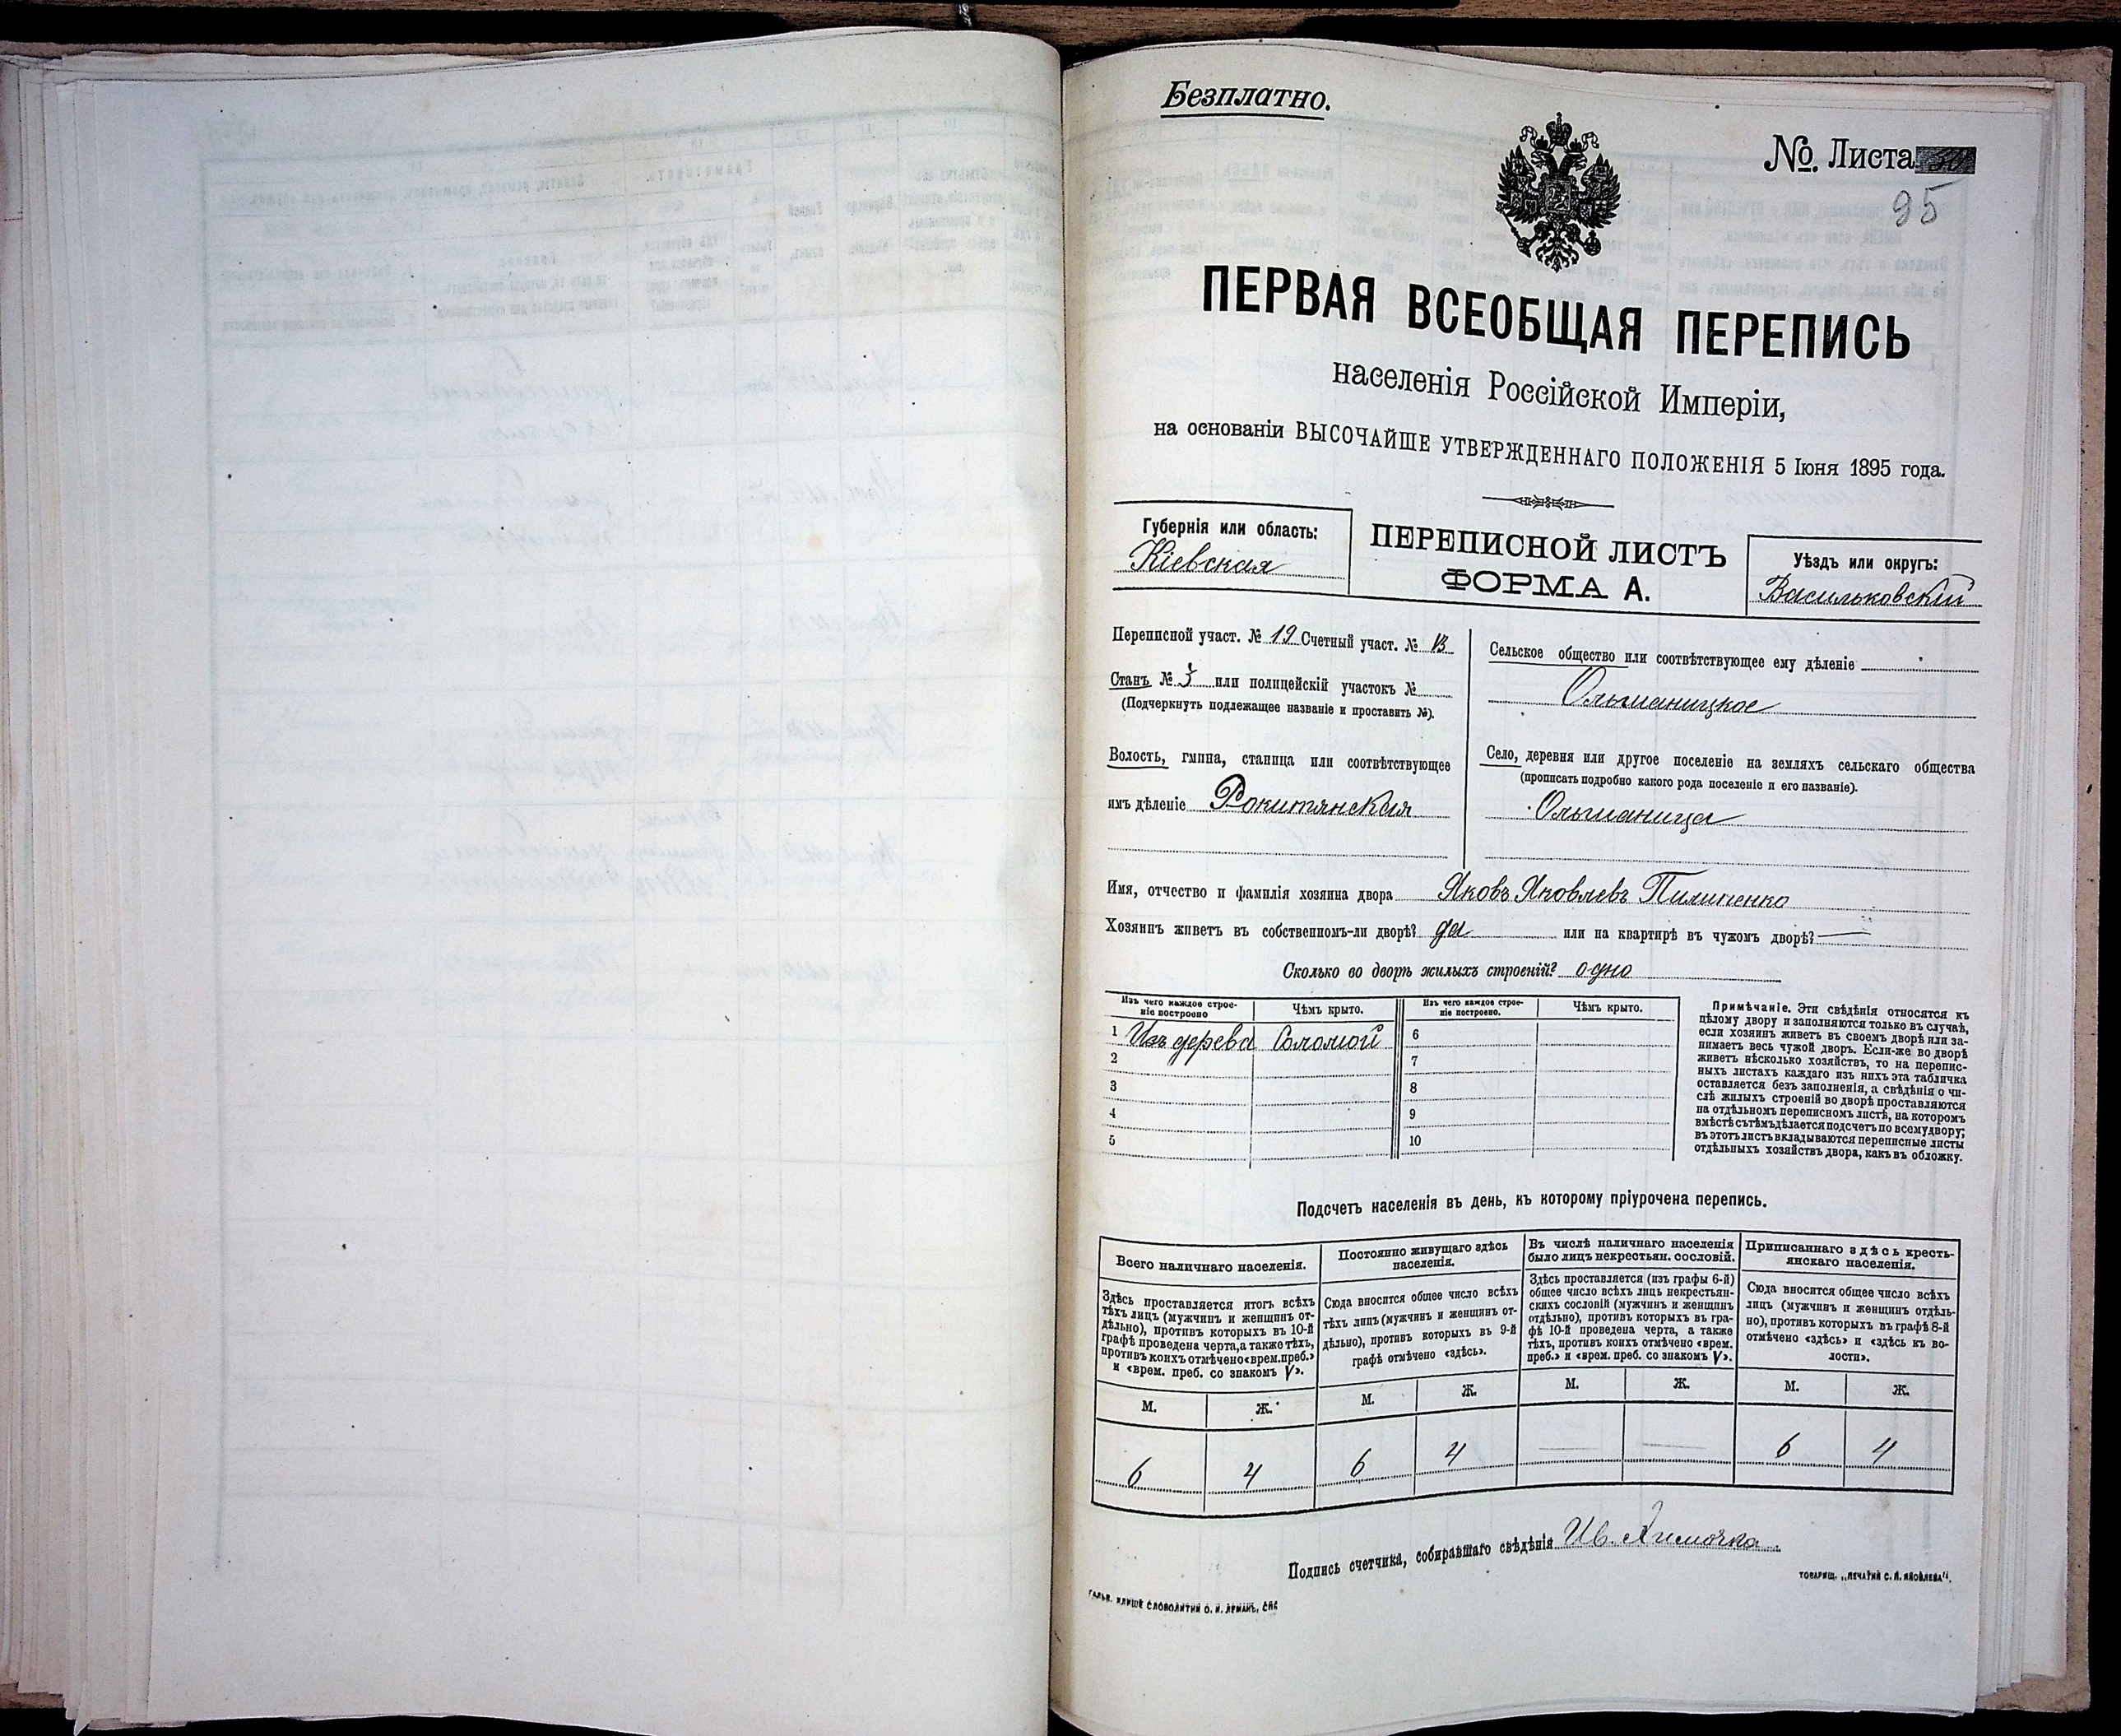 Безплатно.
№ Листа 30
95
ПЕРВАЯ ВСЕОБЩАЯ ПЕРЕПИСЬ
населенія Россійской Имперіи,
на основаніи ВЫСОЧАЙШЕ УТВЕРЖДЕННАГО ПОЛОЖЕНІЯ 5 Іюня 1895 года.
Губернія или область:
Кіевская
ПЕРЕПИСНОЙ ЛИСТЪ
ФОРМА А.
Уѣздъ или округъ:
Васильковскій
Переписной участ. № 19 Счетный участ. №
Станъ № 3 или полицейскій участокъ №
(Подчеркнуть подлежащее названіе и проставить №).
Волость, гмина, станица или соотвѣтствующее
имъ дѣленіе Рокитянская
Сельское общество или соотвѣтствующее ему дѣленіе
Ольшаницкое
Село, деревня или другое поселеніе на земляхъ сельскаго общества
(прописать подробно какого рода поселеніе и его названіе).
Ольшаница
Имя, отчество и фамилія хозяина двора Яковъ Яковлевъ Пилипенко
Хозяинъ живетъ въ собственномъ-ли дворѣ? да или на квартирѣ въ чужомъ дворѣ? —
Сколько во дворѣ жилыхъ строеній? одно
Изъ чего каждое строе-
ніе построено
Чѣмъ крыто.
Изъ чего каждое строе-
ніе построено.
Чѣмъ крыто.
1 Изъ дерева Соломой 6
2 7
3 8
4 9
5 10
Примѣчаніе. Эти свѣдѣнія относятся къ
цѣлому двору и заполняются только въ случаѣ,
если хозяинъ живетъ въ своемъ дворѣ или за-
нимаетъ весь чужой дворъ. Если-же во дворѣ
живетъ нѣсколько хозяйствъ, то на перепис-
ныхъ листахъ каждаго изъ нихъ эта табличка
оставляется безъ заполненія, а свѣдѣнія о чи-
слѣ жилыхъ строеній во дворѣ проставляются
на отдѣльномъ переписномъ листѣ, на которомъ
вмѣстѣ съ тѣмъ дѣлается подсчетъ по всему двору;
въ этотъ листъ вкладываются переписные листы
отдѣльныхъ хозяйствъ двора, какъ въ обложку.
Подсчетъ населенія въ день, къ которому пріурочена перепись.
Всего наличнаго населенія.
Здѣсь проставляется итогъ всѣхъ
тѣхъ лицъ (мужчинъ и женщинъ от-
дѣльно), противъ которыхъ въ 10-й
графѣ проведена черта, а также тѣхъ,
противъ коихъ отмѣчено «врем. преб.»
и «врем. преб. со знакомъ V».
Постоянно живущаго здѣсь
населенія.
Сюда вносится общее число всѣхъ
тѣхъ лицъ (мужчинъ и женщинъ от-
дѣльно), противъ которыхъ въ 9-й
графѣ отмѣчено «здѣсь».
Въ числѣ наличнаго населенія
было лицъ некрестьян. сословій.
Здѣсь проставляется (изъ графы 6-й)
общее число всѣхъ лицъ некрестьян-
скихъ сословій (мужчинъ и женщинъ
отдѣльно), противъ которыхъ въ гра-
фѣ 10-й проведена черта, а также
тѣхъ, противъ коихъ отмѣчено «врем.
преб.» и «врем. преб. со знакомъ V».
Приписаннаго здѣсь кресть-
янскаго населенія.
Сюда вносится общее число всѣхъ
лицъ (мужчинъ и женщинъ отдѣль-
но), противъ которыхъ въ графѣ 8-й
отмѣчено «здѣсь» и «здѣсь къ во-
лости».
М. Ж. М. Ж. М. Ж. М. Ж.
6 4 6 4 — — 6 4
Подпись счетчика, собиравшаго свѣдѣнія Ив.
ТОВАРИЩ. „ПЕЧАТНИ С. П. ЯКОВЛЕВА".
ГАЛЬВ. КЛИШЕ СЛОВОЛИТНИ О. И. ЛЕМАНЪ, СПБ